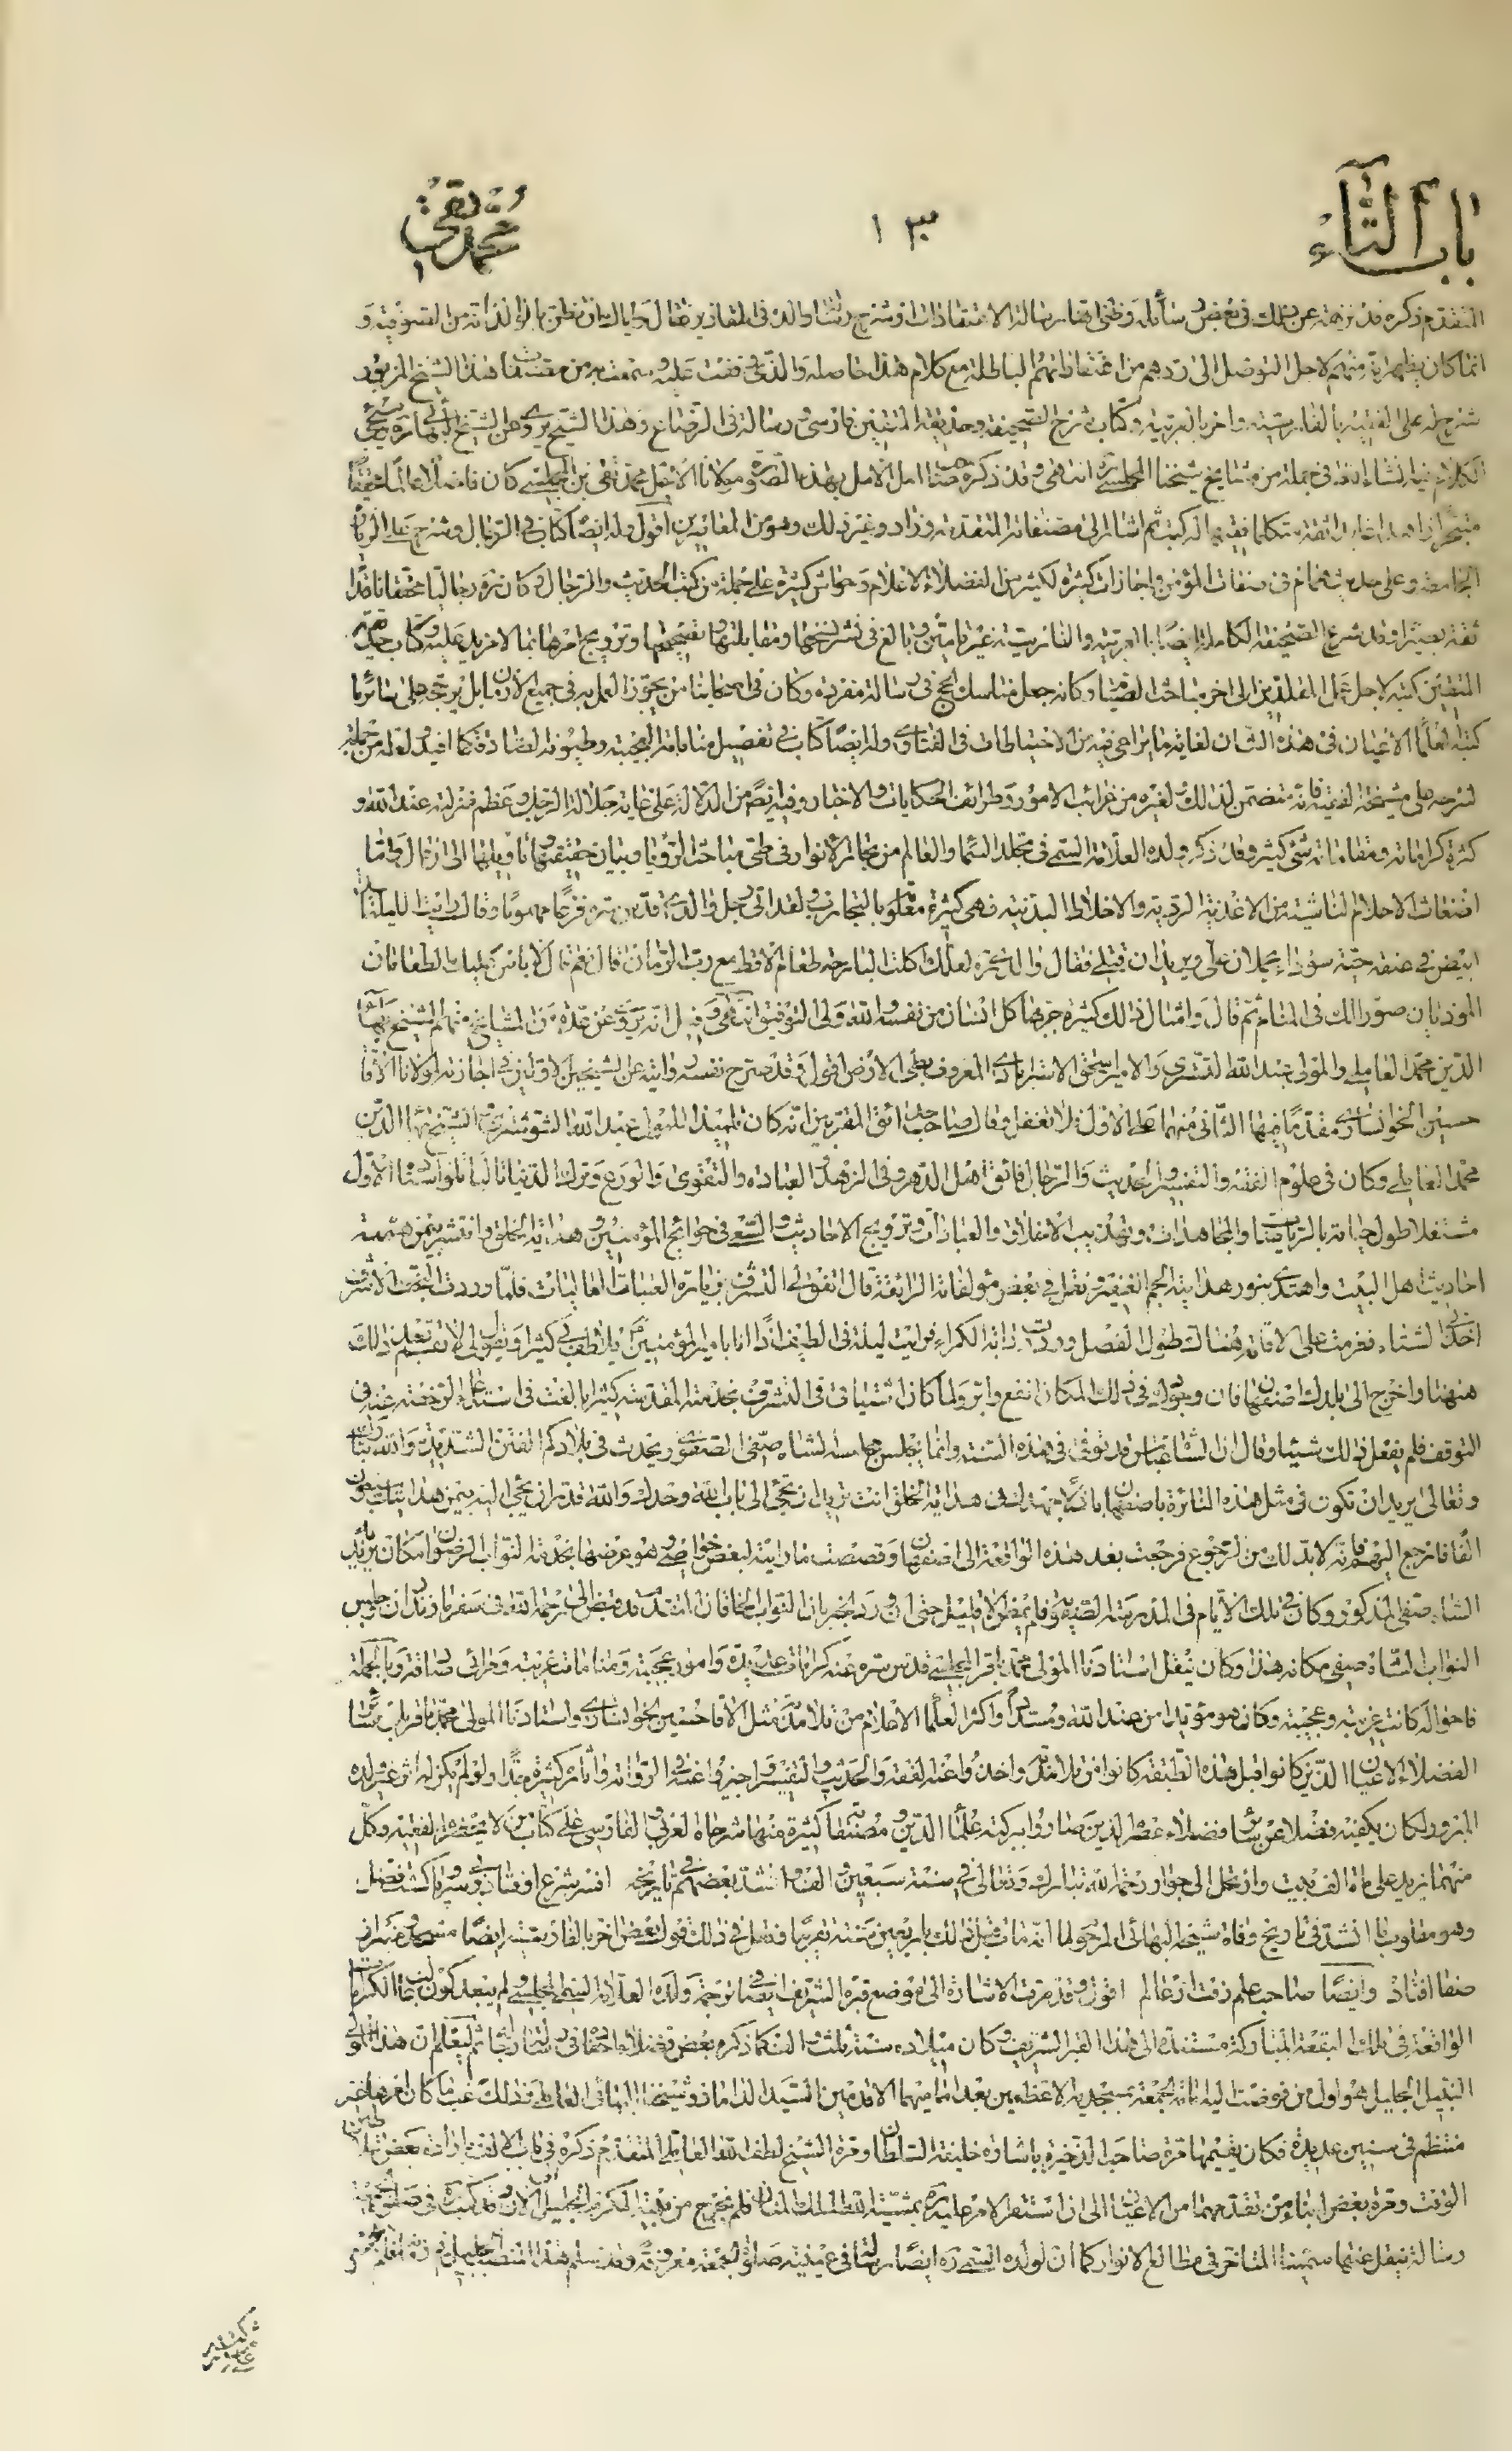 باب التاء ١٣ محمد تقی
المتقدم ذكره قد نزهه عن ذلك فى بعض رسائله وظنى انها رسالة الاعتقادات وشرح والده فى المقادير فقال واياك ان تظن بالوالد انه من الصوفية و
انما كان يظهر انه منهم لاجل التوصل الى ردهم من اعتقاداتهم الباطلة مع كلام هذا حاصله والذى وقفت عليه وسمعت به من مصنفات هذا الشيخ المزبور
شرح له على الفقيه بالفارسية واخر بالعربية وكتاب شرح الصحيفة وحديقة المتقين فارسى ورسالة فى الرضاع وهذا الشيخ يروى عن الشيخ البهائى ره
الكلام فيه انشاء الله فى جملة من مشايخ شيخنا المجلسى ره انتهى وقد ذكره صاحب امل الامل بهذه الصورة مولانا الاجل محمد تقى بن المجلسى كان فاضلا عالما محققا
متبحرا زاهدا عابدا ثقة متكلما فقيها له كتب ثم اشار الى مصنفاته المتقدمة وزاد وغير ذلك وهو من المعاصرين اقول وله ايضا كتاب فى الرجال وشرح على الزيارة
الجامعة وعلى حديث همام فى صفات المؤمن واجازات كثيرة لكثير من الفضلاء الاعلام وحواش كثيرة على جملة من كتب الحديث والرجال وكان ره رجاليا محققا ناقدا
ثقة بصيرا وقد شرح الصحيفة الكاملة ايضا بالعربية والفارسية غير تامين وبالغ فى نشر نسخها ومقابلتها وتصحيحها وترويج امرها بما لا مزيد عليه وكتاب حديقة
المتقين كتبه لاجل عمل المقلدين الى اخر مباحث الصيام وكانه جعل مناسك الحج فى رسالة مفردة وكان فى اصحابنا من يجوز العمل به فى جميع الازمان بل يرجحه على سائر ما
كتبه العلماء الاعيان فى هذه الشان لغاية ما يراعى فيه من الاحتياطات فى الفتاوى وله ايضا كتاب فى تفصيل مناماته العجيبة وطيوفه الصادقة كما افيد ولعله من جملة
شرحه على مشيخة الفقيه فانه متضمن لذلك ولغيره من غرائب الامور وطرائف الحكايات والاخبار وفيه ايضا من الدلالة على غاية جلالة الرجل وعظم منزلته عند الله و
كثرة كراماته ومقاماته شىء كثير وقد ذكر ولده العلامة السمى فى مجلد السماء والعالم من بحار الانوار فى طى مباحث الرؤيا وبيان حقيقتها وتاويلها الى ان قال واما
اضغاث الاحلام الناشئة من الاغذية الردية والاخلاط البدنية فهى كثيرة معلومة بالتجارب ولقد اتى رجل والدى قدس سره فزعا مهموما وقال رايت الليلة اسدا
ابيض فى عنقه حية سوداء يحملان على ويريدان قتلى فقال والدى ره لعلك اكلت البارحة طعام الاقط مع رب الرمان قال نعم قال لا باس عليك الطعامان
الموذيان صورا لك فى المنام ثم قال وامثال ذلك كثيرة جربها كل انسان من نفسه والله ولى التوفيق انتهى وقيل انه يروى عن عدة من المشايخ منهم الشيخ بهاء
الدين محمد العاملى والمولى عبد الله التسترى والامير اسحق الاسترابادى المعروف بطى الارض اقول وقد صرح نفسه بروايته عن الشيخين الاولين فى اجازته لمولانا الاقا
حسين الخوانسارى مقدما فيها الثانى منهما على الاول فلا تغفل وقال صاحب حدائق المقربين انه كان تلميذا للمولى عبد الله الشوشترى والشيخ بهاء الدين
محمد العاملى وكان فى علوم الفقه والتفسير والحديث والرجال فائق اهل الدهر وفى الزهد والعبادة والتقوى والورع وترك الدنيا تاليا تلو استاده الاول
مشتغلا طول حياته بالرياضات والمجاهدات وتهذيب الاخلاق والعبادات وترويج الاحاديث والسعى فى حوائج المؤمنين وهداية الخلق وانتشر بيمن همته
احاديث اهل البيت واهتدى بنور هدايته الجم الغفير ونقل فى بعض مؤلفاته الرائقة قال اتفق لى التشرف بزيارة العتبات العاليات فلما وردت النجف الاشرف
اخذنى الشتاء فعزمت على الاقامة هناك طول الفصل ورددت دابة الكراء فرايت ليلة فى الطيف اذا انا بامير المؤمنين ع يلاطف بى كثيرا ويقول لى لا تقم بعد ذلك
هيهنا واخرج الى بلدك اصفهان فان وجودك فى ذلك المكان انفع وابر ولما كان اشتياقى فى التشرف بخدمته المقدسة كثيرا بالغت فى استدعاء الرخصة عنه فى
التوقف فلم يفعل ذلك شيئا وقال ان الشاه عباس قد توفى فى هذه السنة وانما يجلس مجلسه الشاه صفى الصفوى ويحدث فى بلادكم الفتن الشديدة والله تبارك
وتعالى يريد ان تكون فى مثل هذه النائرة باصفهان باذلا جهدك فى هداية الخلق انت تريد ان تجىء الى باب الله وحدك والله قد اراد ان يجىء اليه بيمن هدايتك سبعون
الفا فارجع اليهم فانه لا بد لك من الرجوع فرجعت بعد هذه الواقعة الى اصفهان وقصصت ما رايته لبعض خواصى وهو عرضها بخدمة النواب الرضوان مكان يريد
الشاه صفى المذكور وكان فى تلك الايام فى المدرسة الصفوية فلم يمض الا قليل حتى ان ورد الخبر بان النواب الخاقان المتقدم قد مضى الى رحمة الله فى سفر مازندران وجلس
النواب الشاه صفى مكانه هذا وكان ينقل استادنا المولى محمد باقر المجلسى قدس سره عنه كرامات عديدة وامورا عجيبة ومنامات غريبة وبالجملة
فاحواله كانت غريبة وعجيبة وكانه هو مؤيدا من عند الله ومسددا واكثر العلماء الاعلام من تلامذته مثل الاقا حسين الخوانسارى واستادنا المولى محمد باقر بل
الفضلاء الاعيان الذين كانوا قبل هذه الطبقة كانوا من تلامذته واخذوا عنه الفقه والحديث والتفسير واجيزوا عنه فى الرواية واثاره كثيرة جدا ولو لم يكن له اثر غير ولده
المزبور لكان يكفيه فضلا عن سائر فضلاء عصره الذين صاروا ببركته علماء الدين ومصنفاته كثيرة منها شرحاه العربى والفارسى على كتاب من لا يحضره الفقيه وكل
منهما يزيد على مائة الف بيت وارتحل الى جوار رحمة الله تبارك وتعالى فى سنة سبعين والف وانشد بعضهم فى تاريخه افسر شرع اوفتاد وبى سر وپا گشت فضل
وهو مقلوب ما انشد فى تاريخ وفاة شيخه البهائى المرحوم لما انه مات قبل ذلك باربعين سنة تقريبا وقيل فى ذلك قول بعض اخر بالفارسية ايضا
صفا افتاد وايضا صاحب علم رفت از عالم اقول وقد مرت الاشارة الى موضع قبره الشريف ايضا فى ترجمة ولده العلامة السمى المجلسى ولم يبعد كون
الواقعة فى تلك البقعة المباركة مستندة الى هذا القبر الشريف وكان ميلاده سنة ثلث والف كما ذكره بعض فضلاء ثم ليعلم ان هذا المولى
النبيل الجليل هو اول من فوضت اليه امامة الجمعة بمسجديه الاعظمين بعد اماميهما الاقدمين السيد الداماد وشيخنا البهائى العاملى وذلك غب ما كان امرها غير
منتظم فى سنين عديدة فكان يقيمها مرة صاحب الذخيرة باشارة خليفة السلطان ومرة الشيخ لطف الله العاملى المتقدم ذكره فى باب الالف
الوقت ومرة بعض ابناء من تقدمهما من الاعيان الى ان استقر الامر عليه ره بمشية الله الملك المنان فلم يخرج من بيته المكرم الجليل الى الان وقد كتب فى صلوة الجمعة
رسالة ينقل عنها سمينا المتاخر فى مطالع الانوار كما ان لولده السمى ره ايضا رسالة فى عينية صلوة الجمعة معروفة وقد سلم هذا المنصب الجليل